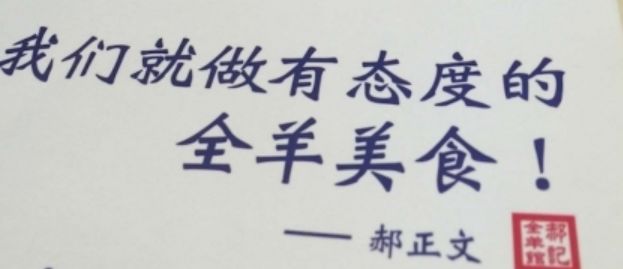 我们就做有态度的
全羊美食！
——郝正文
郝记
全羊馆